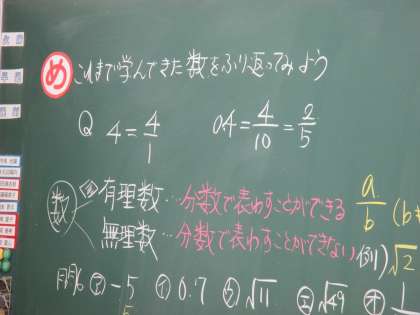 め これまで学んできた数をふり返ってみよう
Q 4=4/1 0.4=4/10=2/5
数 有理数…分数で表わすことができる a/b (b≠
無理数…分数で表わすことができない 例)√2
問6 ㋐-5 ㋑0.7 ㋒√11 ㋓√49 ㋔1